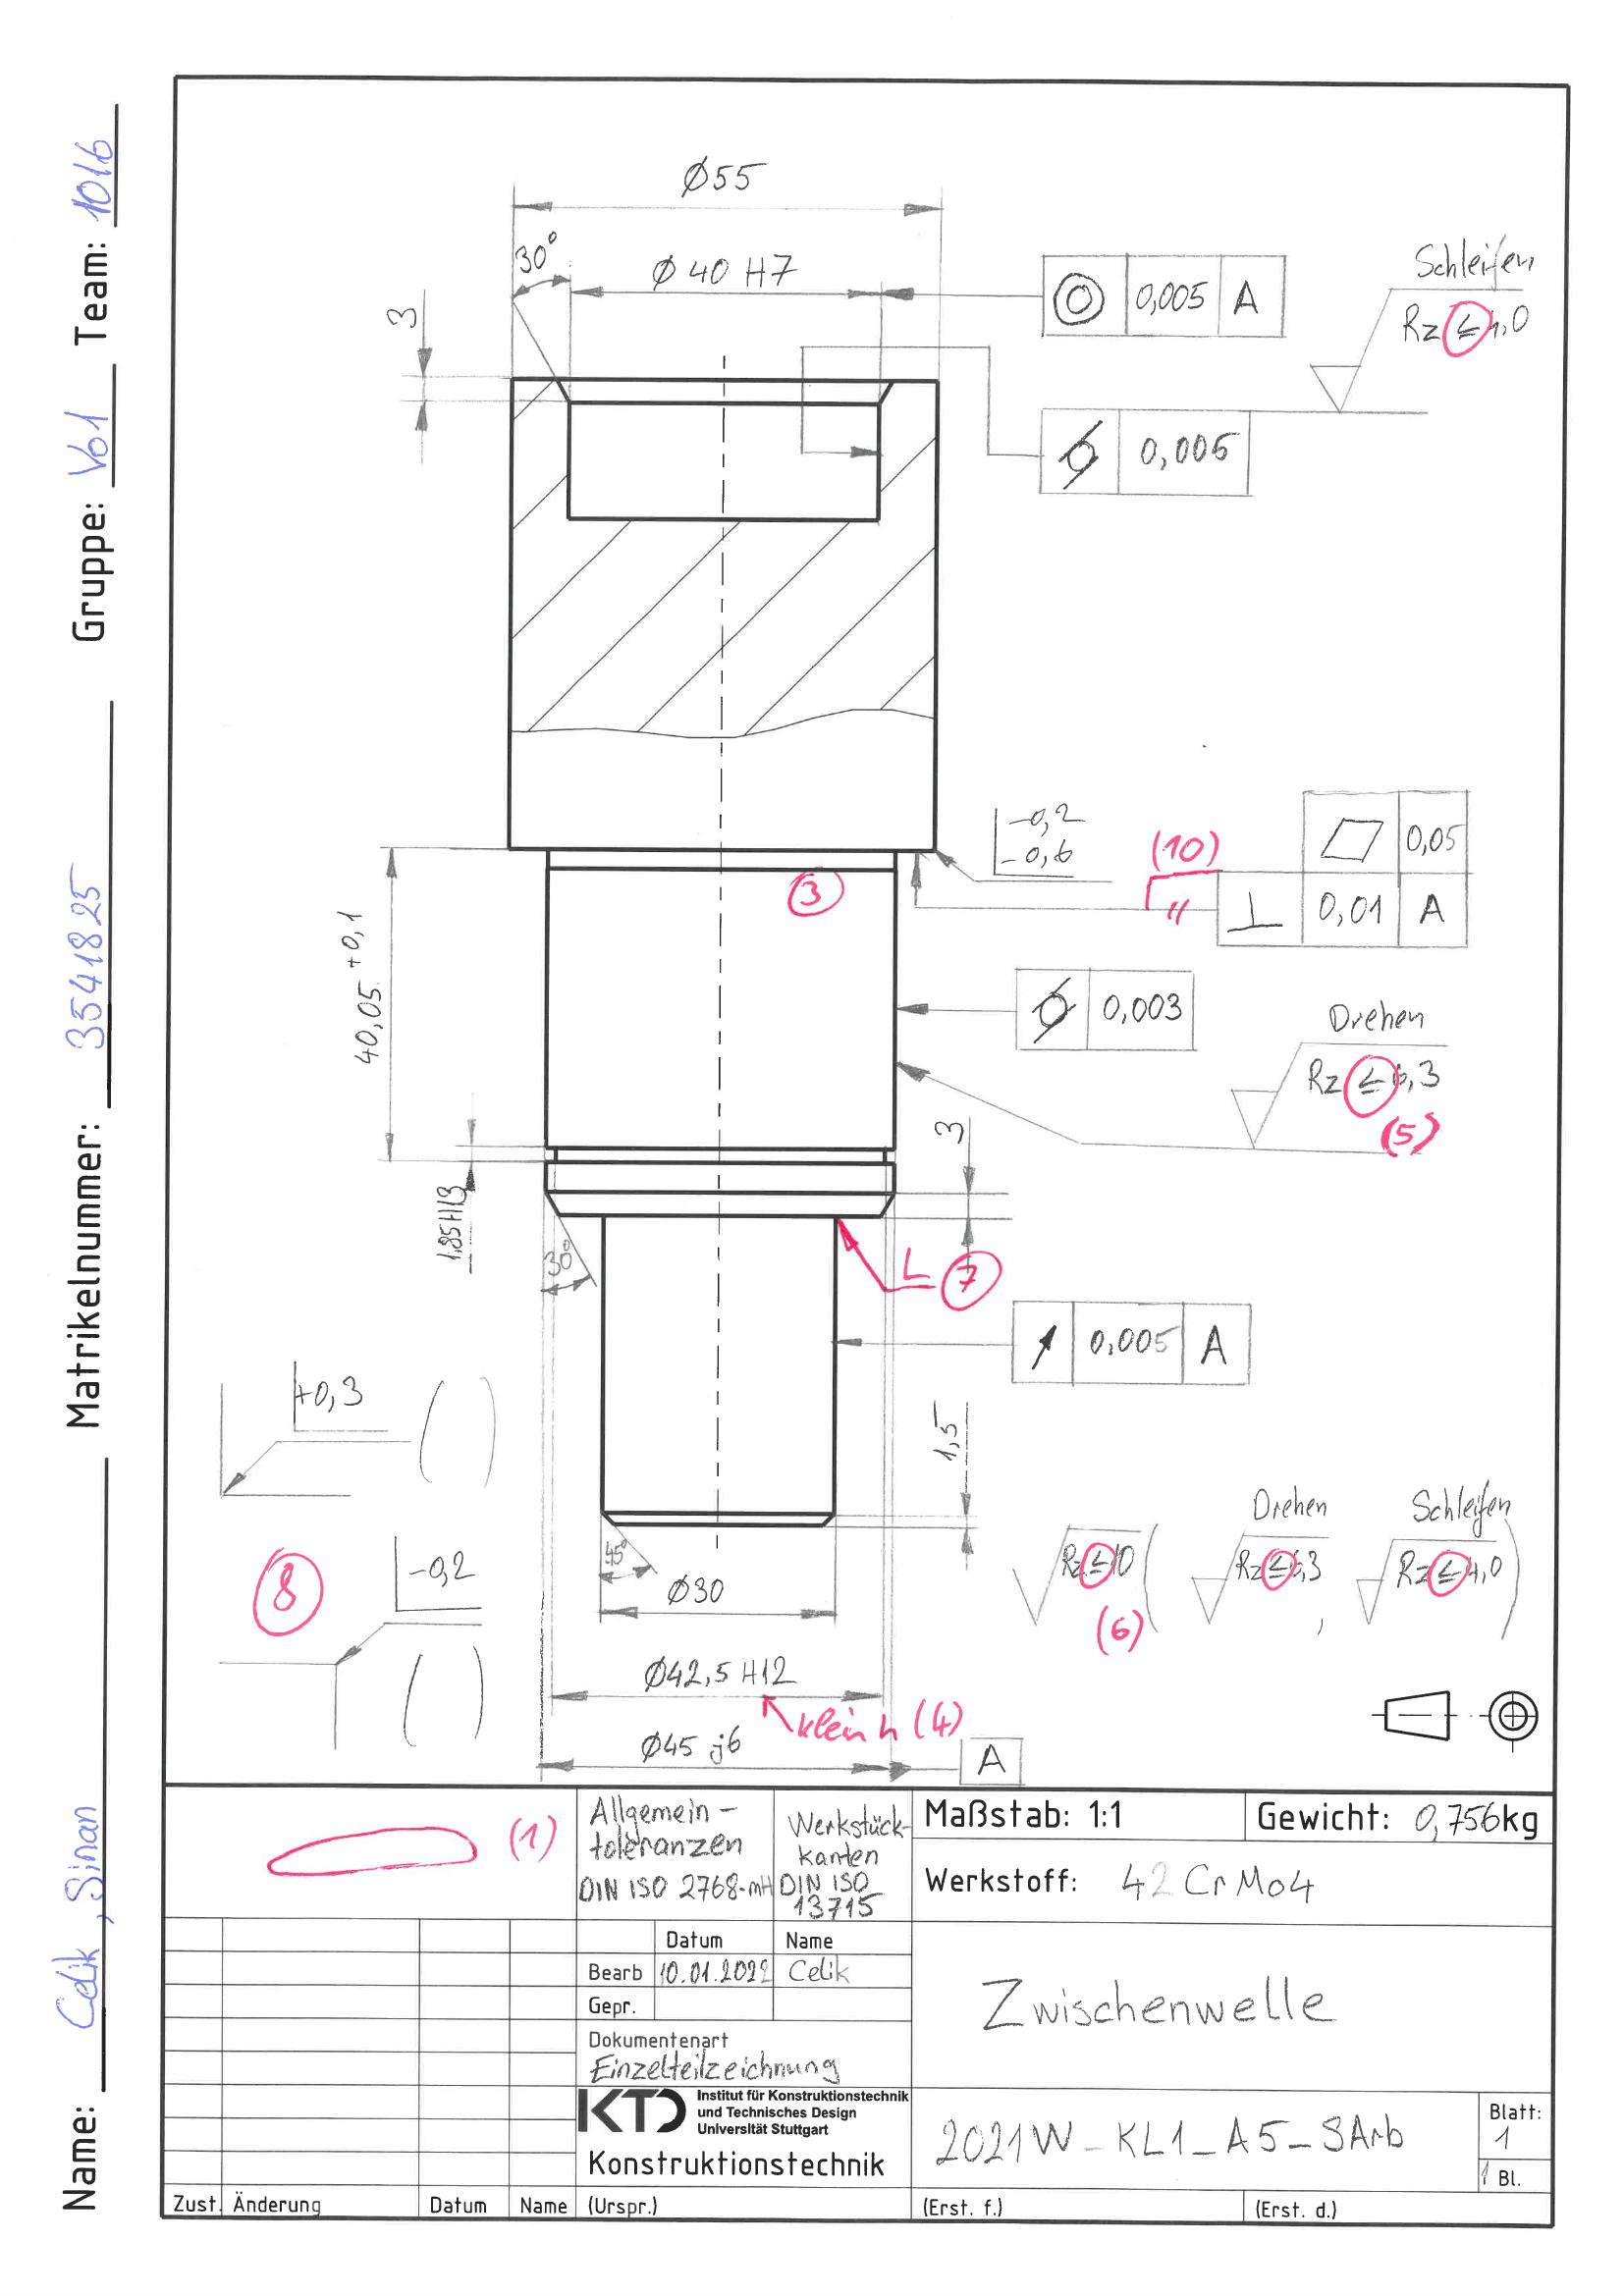 Name: Celik, Sinan Matrikelnummer: 3541825 Gruppe: Vo1 Team: 1016
Ø55
30°
Ø 40 H7
0,005 A
Schleifen
Rz ≤ 4,0
3
0,005
-0,2
-0,6
(10)
"
0,05
0,01 A
3
40,05 +0,1
0,003
Drehen
Rz ≤ 6,3
(5)
3
1,85 H13
30°
L 7
0,005 A
+0,3
( )
1,5
8
-0,2
( )
45°
Ø30
Drehen
Schleifen
Rz ≤ 10 ( Rz ≤ 6,3 , Rz ≤ 4,0 )
(6)
Ø42,5 H12
klein h (4)
Ø45 j6
A
(1)
Allgemein-
toleranzen
DIN ISO 2768-mH
Werkstück-
kanten
DIN ISO
13715
Maßstab: 1:1
Gewicht: 0,756kg
Werkstoff: 42CrMo4
Datum Name
Bearb 10.01.2022 Celik
Gepr.
Zwischenwelle
Dokumentenart
Einzelteilzeichnung
KTD
Institut für Konstruktionstechnik
und Technisches Design
Universität Stuttgart
Konstruktionstechnik
2021W_KL1_A5_SArb
Blatt:
1
1 Bl.
Zust. Änderung Datum Name (Urspr.) (Erst. f.) (Erst. d.)